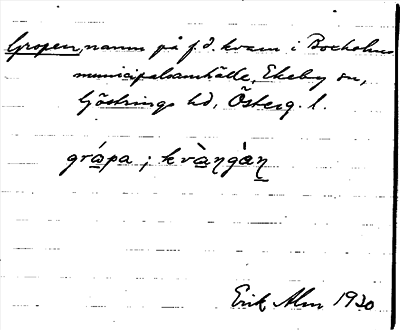 Gropen, namn på f.d. kvarn i Boxholms
municipalsamhälle, Ekeby sn,
Göstrings hd, Österg. l.
gråpa ; kvàŋġàŋ
Erik Alm 1920